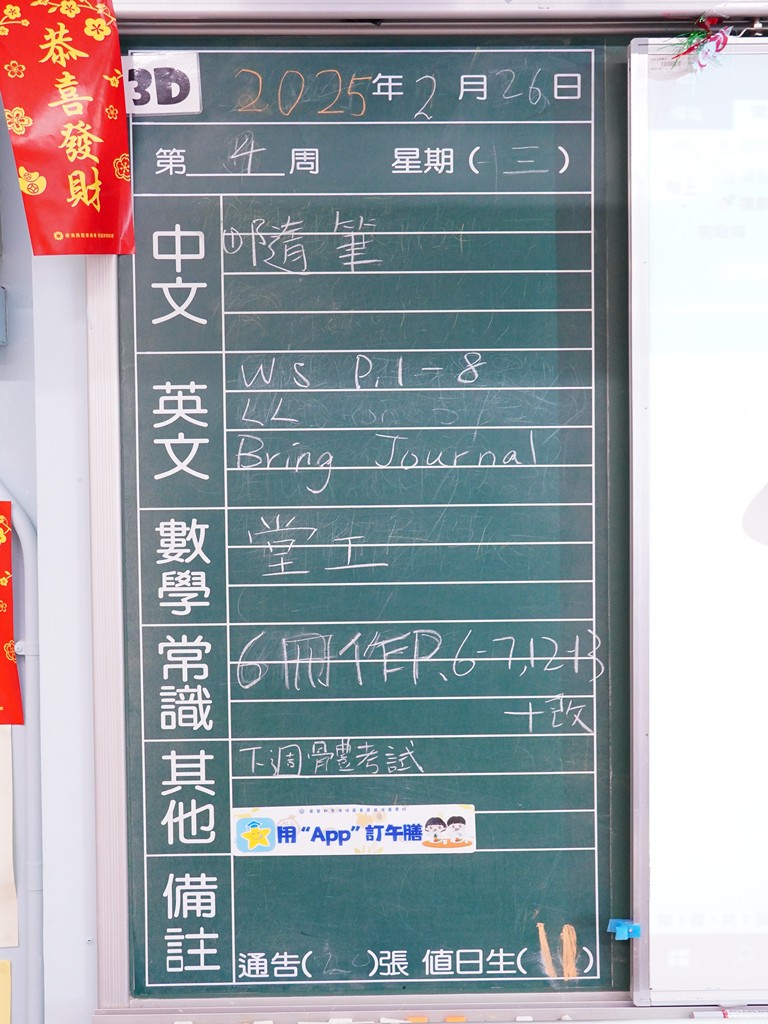 恭喜發財
3D
2025年2月26日
第4周 星期(三)
中文
①隨筆
英文
WS P.1-8
LL
Bring Journal
數學
堂工
常識
6冊作P.6-7,12-13
+改
其他
下週骨體考試
用“App”訂午膳
備註
通告(2)張 值日生(11)